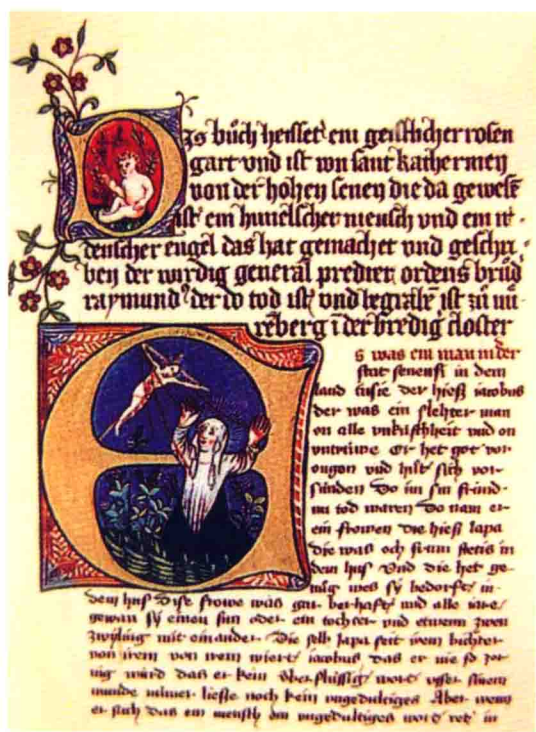 Dzs bůch heisset ein geistlicher rosen
gart vnd ist von sant katherinen
von der hohen senen die da gewesē
ist ein himelscher mensch vnd ein ir
denscher engel das hat gemachet vnd geschri
ben der wirdig general predier ordens brůd
raymund der do tod ist vnd begrabē ist zů nů
reberg ī der bredig closter
Es was ein man in der
stat senensi in dem
land tusie der hiess iacobus
der was ein slehter man
on alle vnkuschheit vnd on
vntrüwe Er het got vor
ougen vnd hilt sich vor
sünden Do im sin fründ
nu tod waren Do nam er
ein frowen die hiess lapa
die was och
dem hus Vnd die het ge
nůg wes sy bedorfte in
dem hus Dise frowe was gar berhafft vnd alle iare
gewan sy einen sun oder ein tochter vnd etwenn zwen
zwyling mit einander Die selb lapa seit irem bichter
von irem wiert iacobus das er nie so zor
nig wurd das er kein wort vsser sinem
munde niemer liesse noch kein vngedultiges Aber wenn
er sach das ein mensch ein vngedultiges word ret in